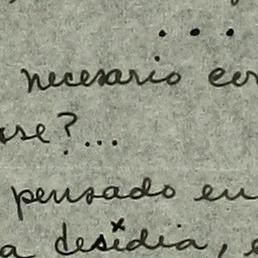 ...
necesario
?...
pensado en
a desidia,